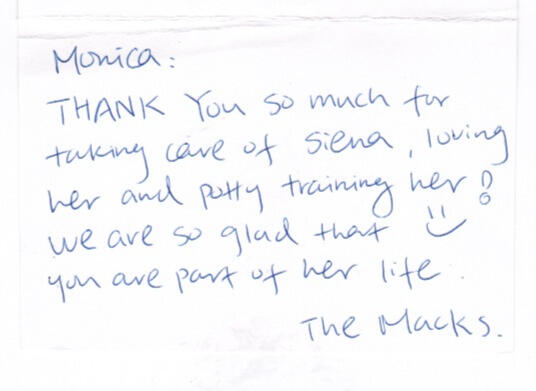 Monica:
THANK You so much for
taking care of Siena, loving
her and potty training her!
we are so glad that
you are part of her life.
The Macks.